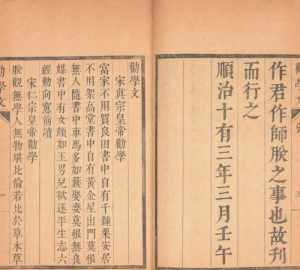 作君作師朕之事也故刊
而行之
順治十有三年三月壬午
勸學文
宋真宗皇帝勸學
富家不用買良田書中自有千鍾粟安居
不用架高堂書中自有黃金屋出門莫恨
無人隨書中車馬多如簇娶妻莫恨無良
媒書中有女顏如玉男兒欲遂平生志六
經勤向窗前讀
宋仁宗皇帝勸學
朕觀無學人無物堪比倫若比於草木草
勸學文